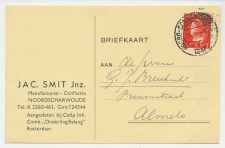 BRIEFKAART
JAC. SMIT Jnz.
Manufacturen - Confectie
NOORDSCHARWOUDE
Tel. K 2260-461. Giro 124344
Aangesloten bij Coöp. Ink.
Comb. „Onderling Belang"
Rotterdam
Aan de firma
Almelo